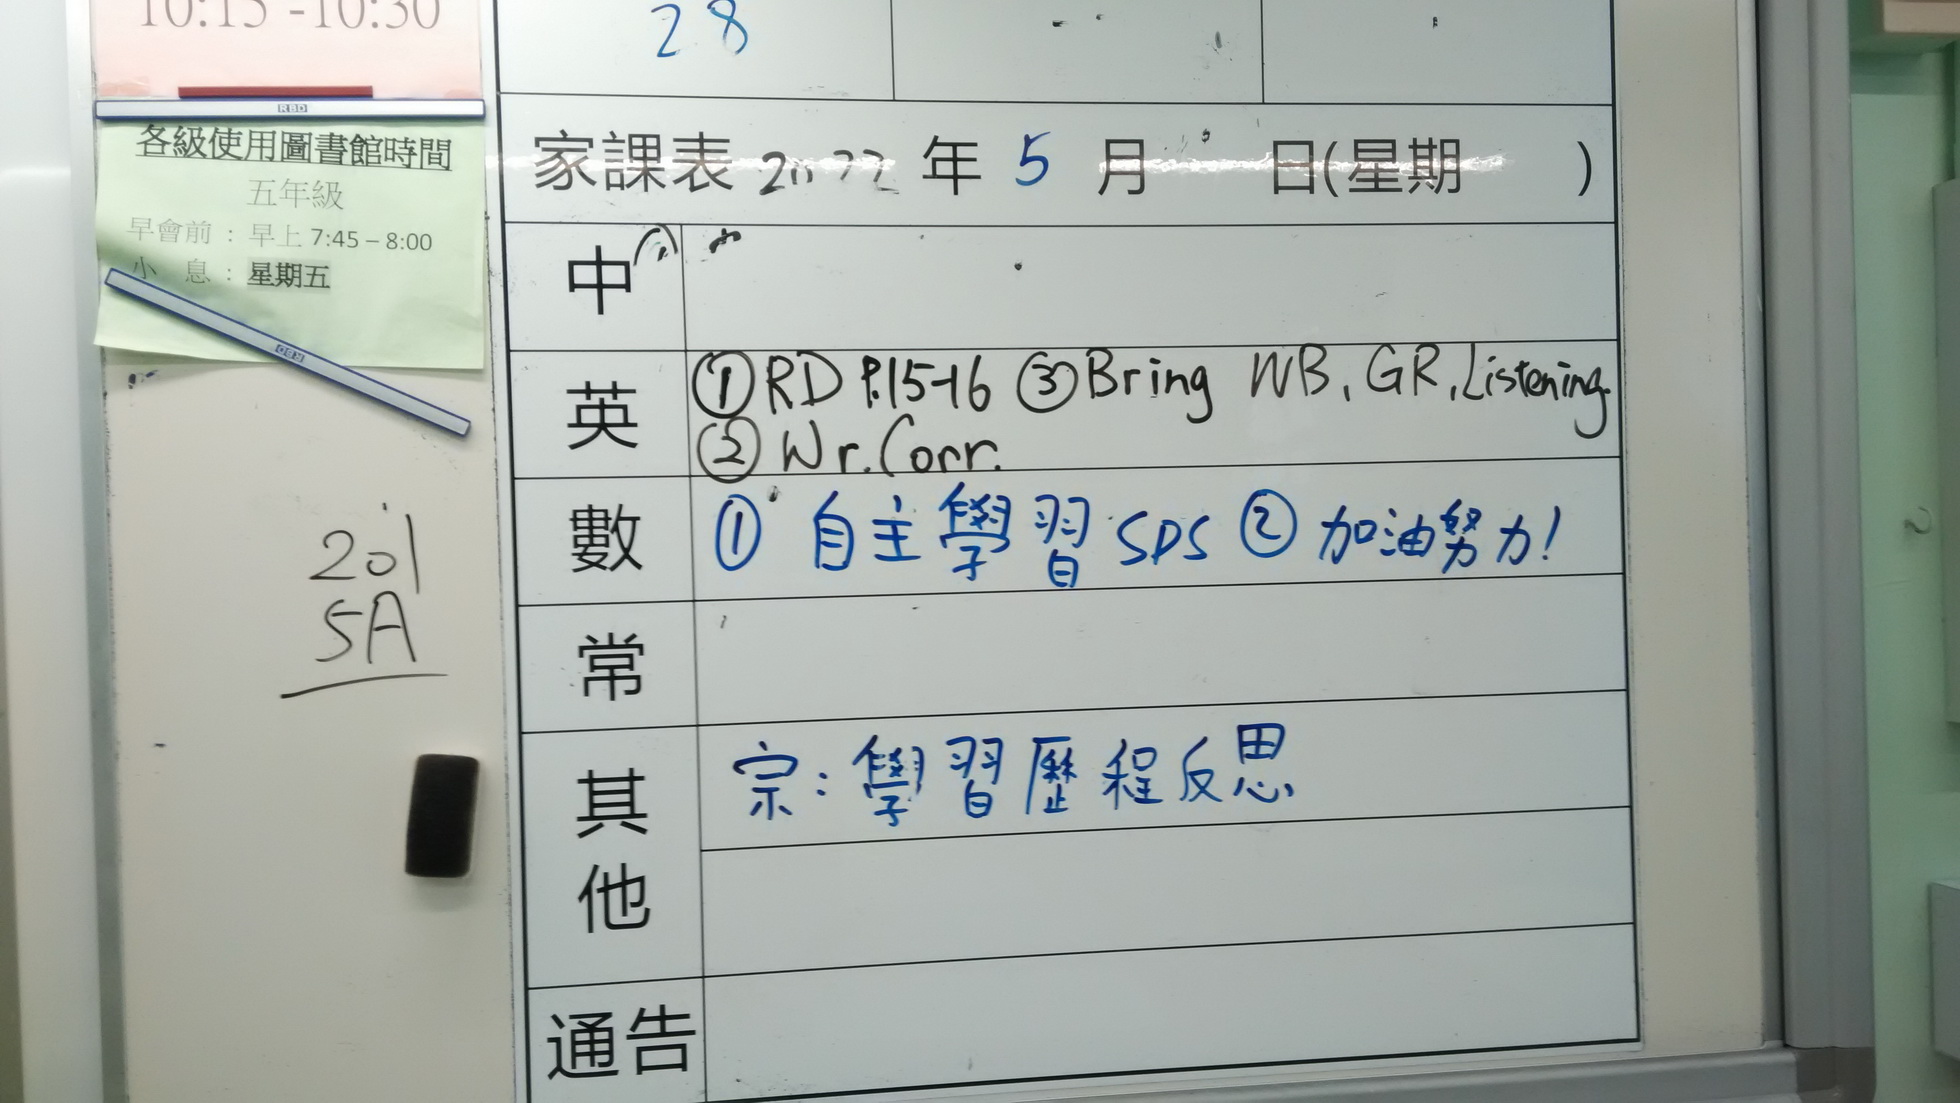 10:15 -10:30
RBD
各級使用圖書館時間
五年級
早會前：早上 7:45 – 8:00
小 息：星期五
RBD
201
5A
28
家課表 2022 年 5 月 日(星期 )
中
英
① RD P.15-16 ③ Bring WB, GR, Listening.
② Wr. Corr.
數
① 自主學習 SDS ② 加油努力!
常
其他
宗：學習歷程反思
通告